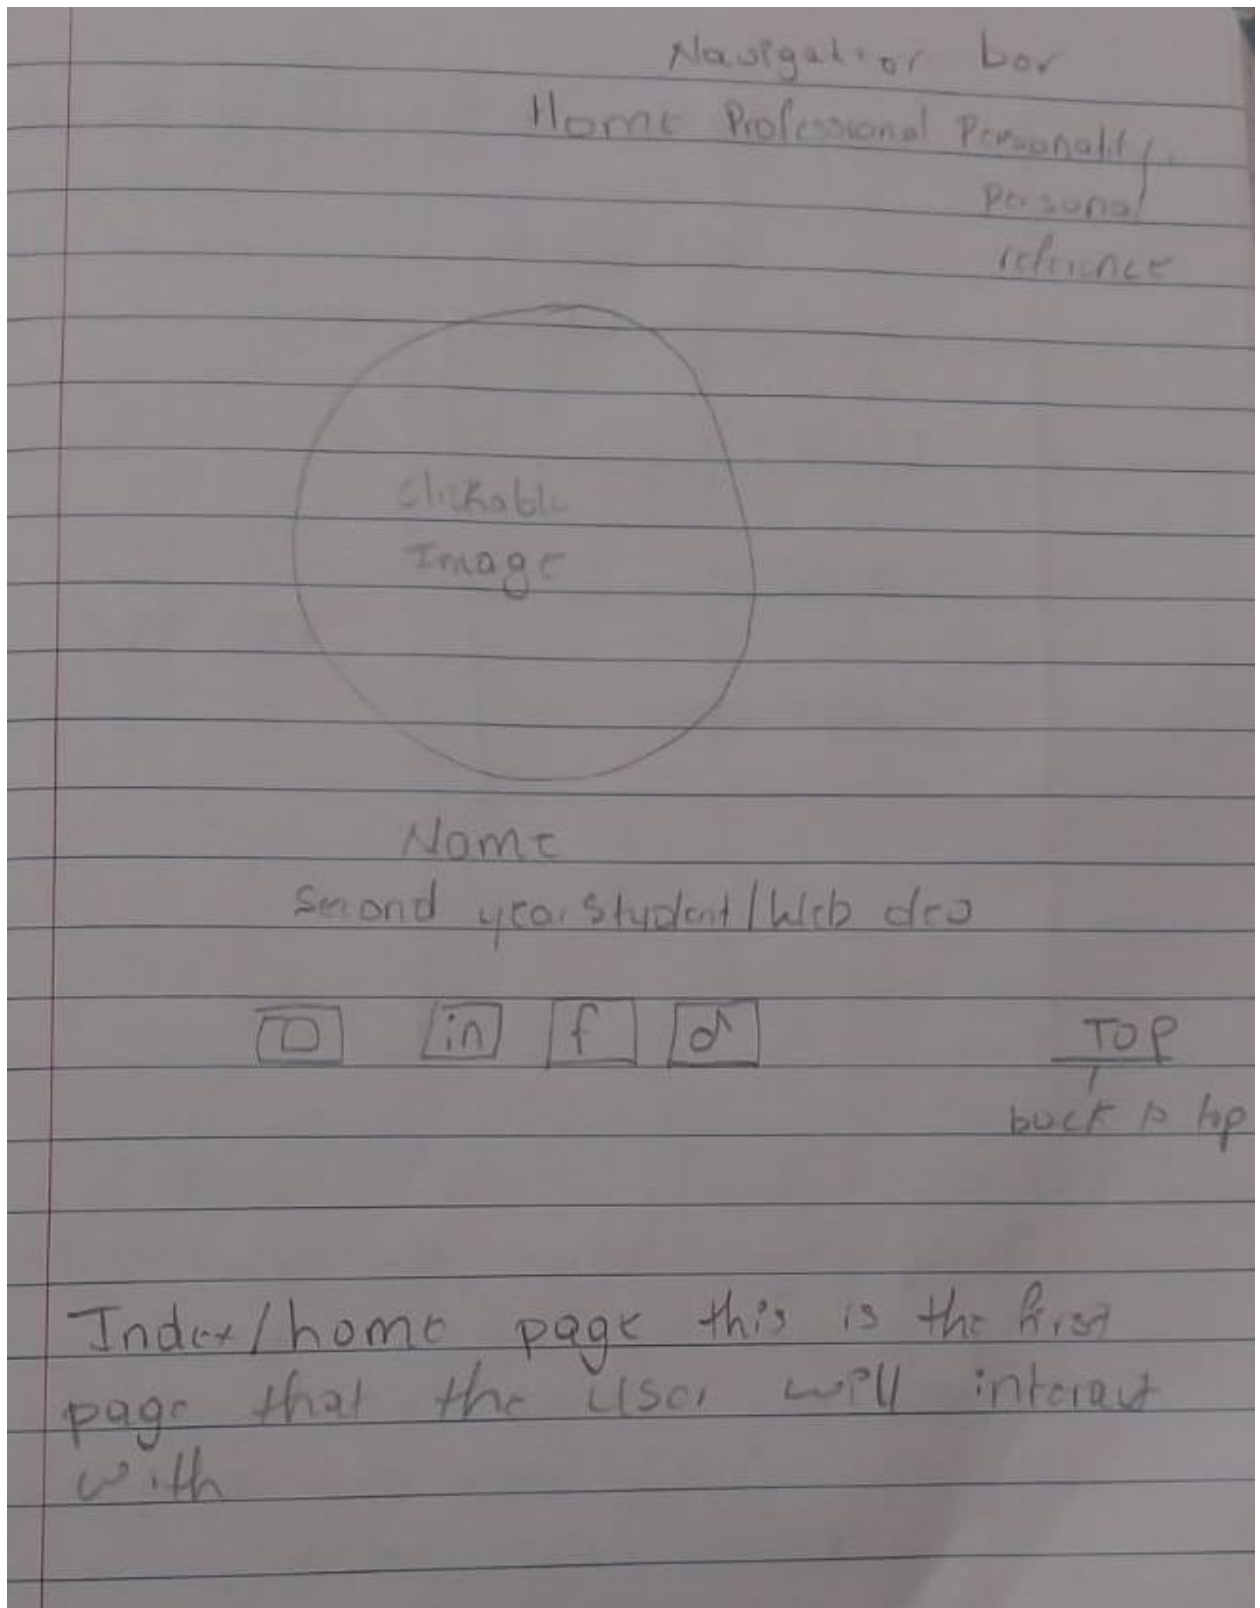 Navigation bar
Home Professional Personality
Personal
refrience
clickable
Image
Name
Second year Student/Web dev
in f
TOP
back to top
Index/home page this is the first
page that the user will interact
with